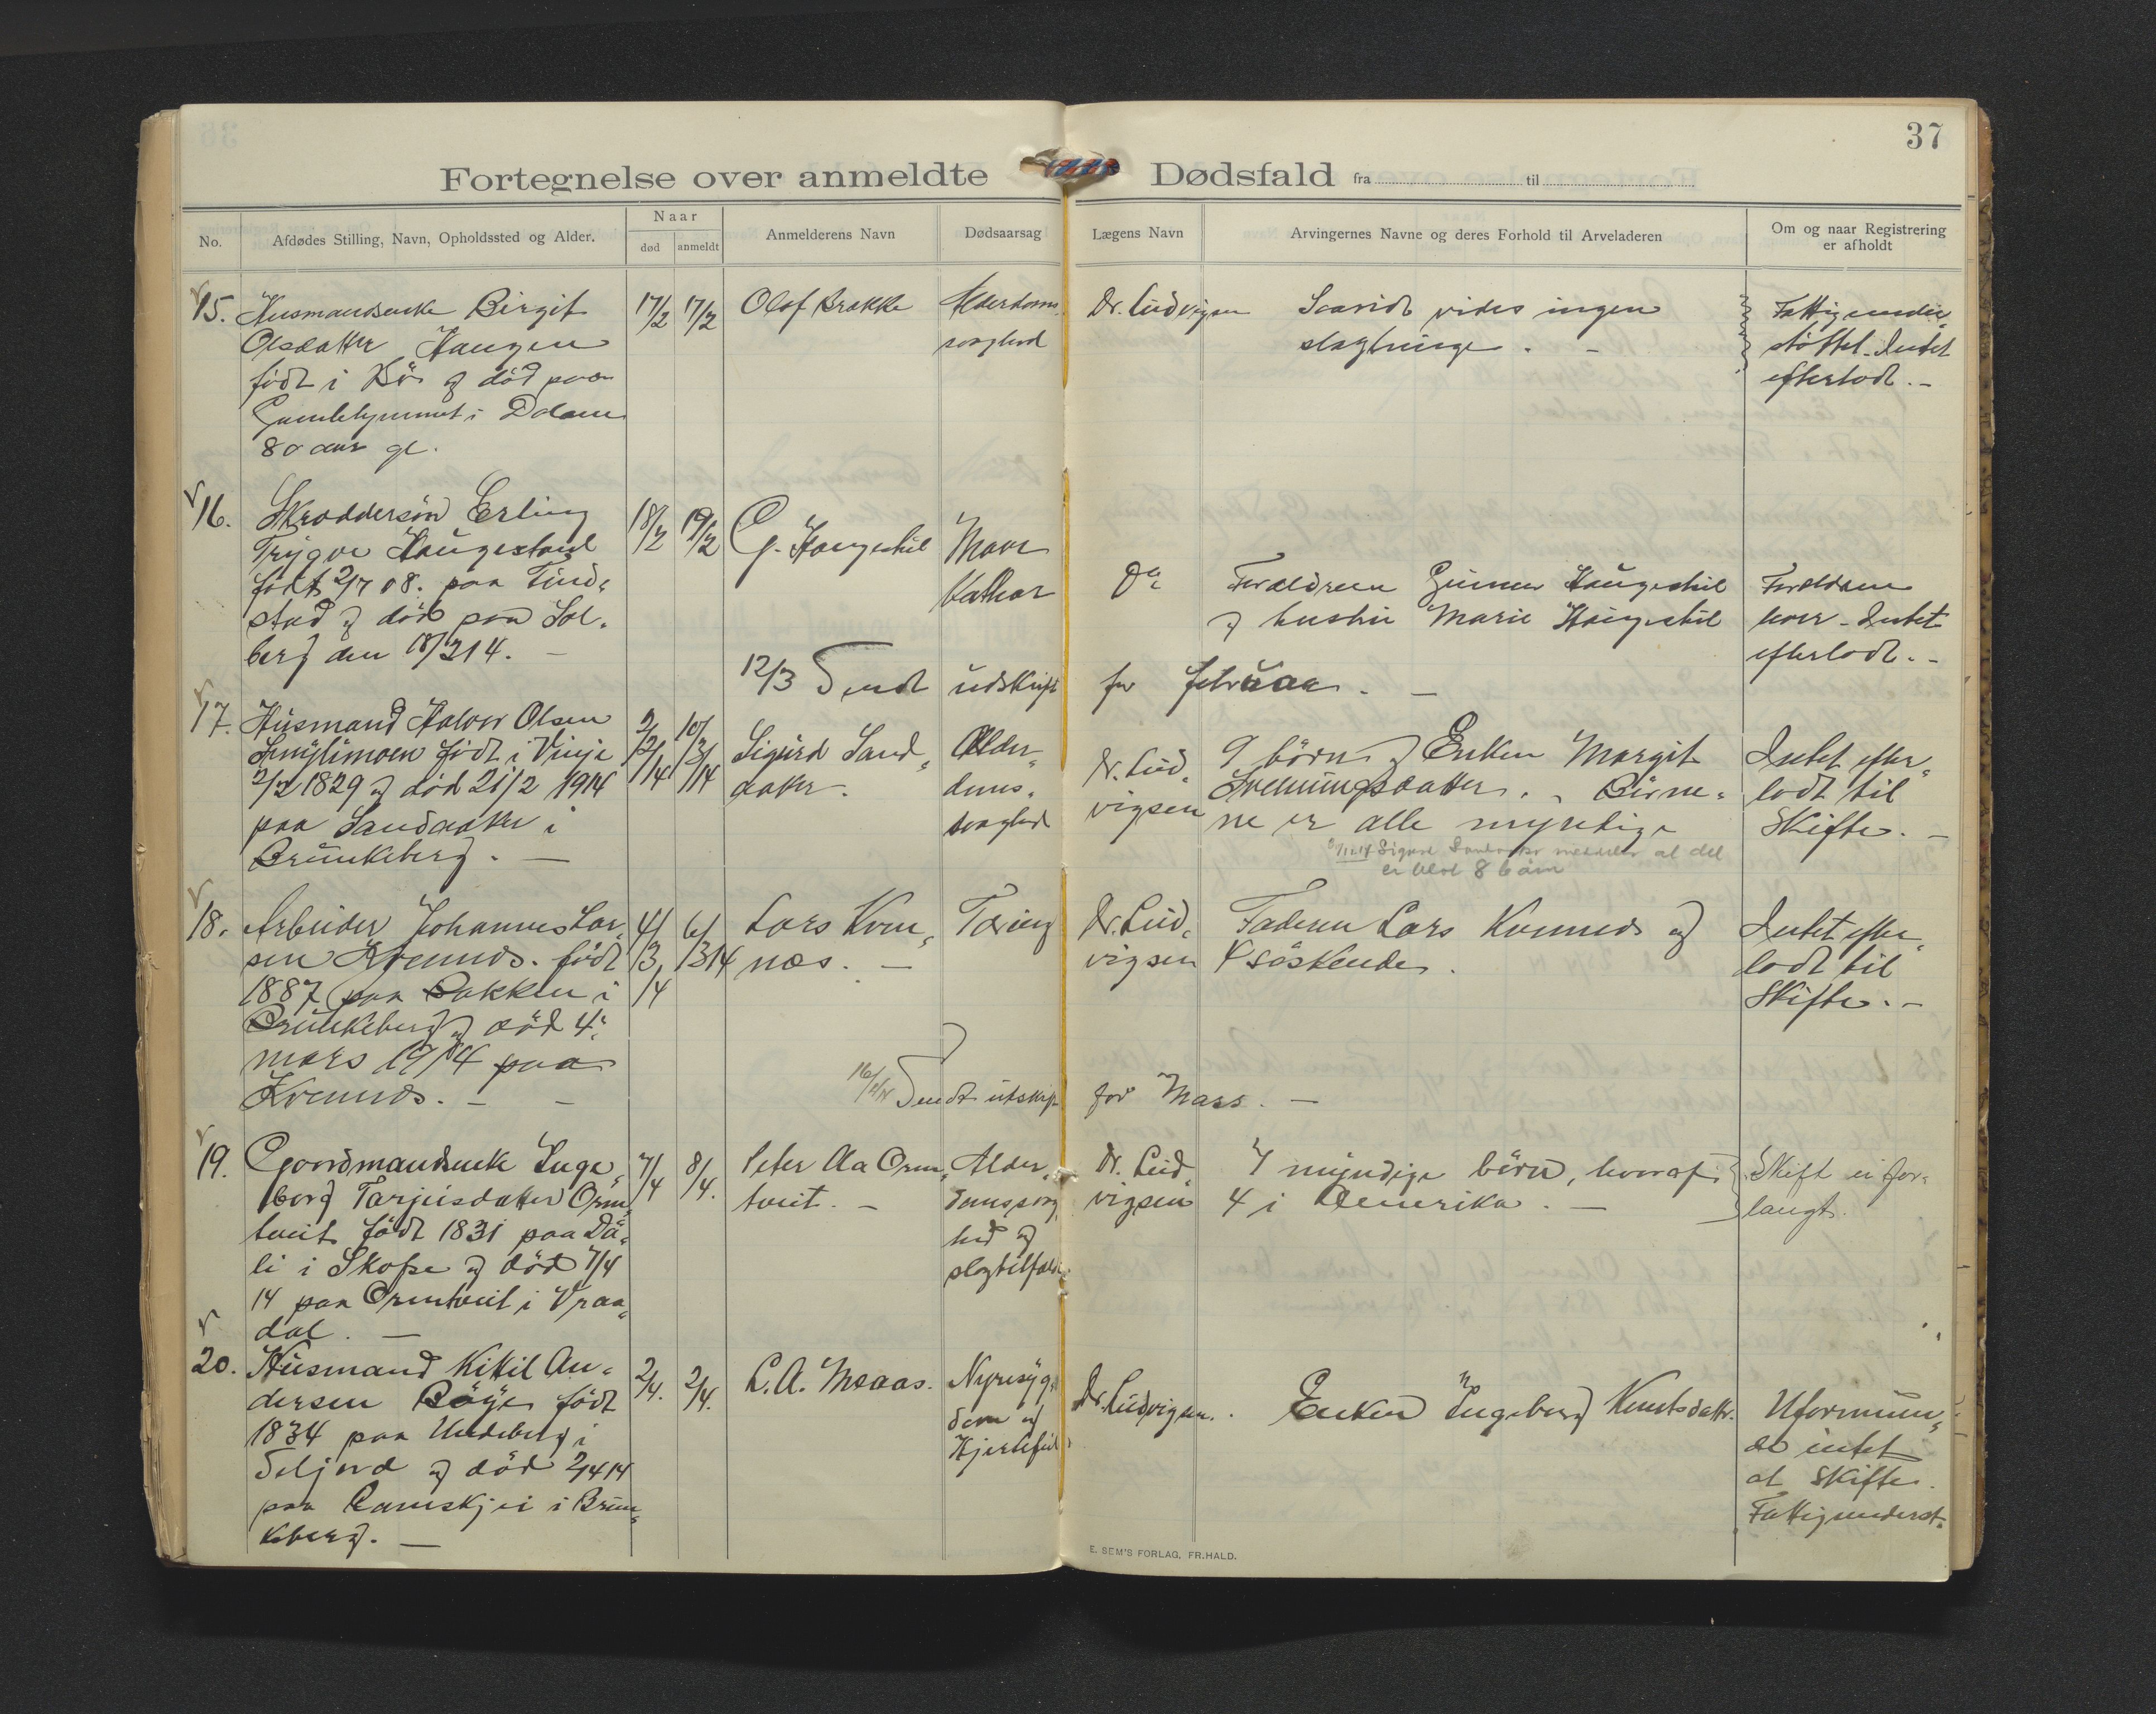 37
Fortegnelse over anmeldte Dødsfald fra til
No.
Afdødes Stilling, Navn, Opholdssted og Alder.
Naar
død
anmeldt
Anmelderens Navn
Dødsaarsag
Lægens Navn
Arvingernes Navne og deres Forhold til Arveladeren
Om og naar Registrering
er afholdt
15. Husmandsenke Birgit
Olsdatter Haugen
født i Bö og död paa
Gamlehjemmet i Dalane
80 aar gl.
17/2
17/2
Olof Brekke
Alderdoms
svaghed
Dr. Ludvigsen
Saavidt vides ingen
slegtninge. -
Fattigunder
støttet. Intet
efterladt. -
16. Skreddersön Erling
Trygve Haugestøl
født 2/7 08. paa Tind-
stad og död paa Sol-
berg den 18/2 14. -
18/2
19/2
G. Haugestöl
Mave
Kathar
Do
Foreldrene Gunnar Haugestöl
og hustru Marie Haugestöl
Foreldrene
lever. Intet
efterladt. -
12/3 Sendt udskrift for februar. -
17. Husmand Halvor Olsen
Smylimoen født i Vinje
2/2 1829 og död 21/2 1914
paa Sandaaker i
Brunkeberg. -
2/2 14
10/3 14
Sigurd Sand-
aaker.
Alder-
doms-
svaghed
Dr. Lud-
vigsen
9 börn og Enken Margit
Svenningsdatter. - Börne-
ne er alle myndige
Sigurd Sandaaker meddeler at det
er blot 8 börn
Intet efter-
ladt til
Skifte. -
18. Arbeider Johannes Lar-
sen Kvennes. født
1887 paa Bakken i
Brunkeberg og död 4.
mars 1914 paa
Kvennes. - -
4/3 14
6/3 14
Lars Kven-
nes. -
Tæring
Dr. Lud-
vigsen
Faderen Lars Kvennes og
4 söskende.
Intet efter-
ladt til
Skifte. -
Sendt utskrift for Mars. -
19. Gaardmandsenke Inge-
borg Tarjeisdatter Orm-
tveit født 1831 paa Då-
li i Skafse og död 7/4
14 paa Ormtveit i Vraa-
dal. -
7/4
8/4.
Peter Aa Orm-
tveit. -
Alder-
domssvag-
hed og
slagtilfælde.
Dr. Lud-
vigsen
7 myndige börn, hvoraf
4 i Amerika. -
Skift ei for-
langt.
20. Husmand Kittil An-
dersen Böye født
1834 paa Undeberg i
Seljord og död 2/4 14
paa Ramskjei i Brun-
keberg. -
2/4.
2/4.
L. A. Moaas.
Nyresyg-
dom og
Hjertefeil
Dr. Ludvigsen.
Enken Ingeborg Knutsdatr.
Uformuen-
de intet
at Skifte.
Fattigunderst.
E. SEM'S FORLAG, FR.HALD.